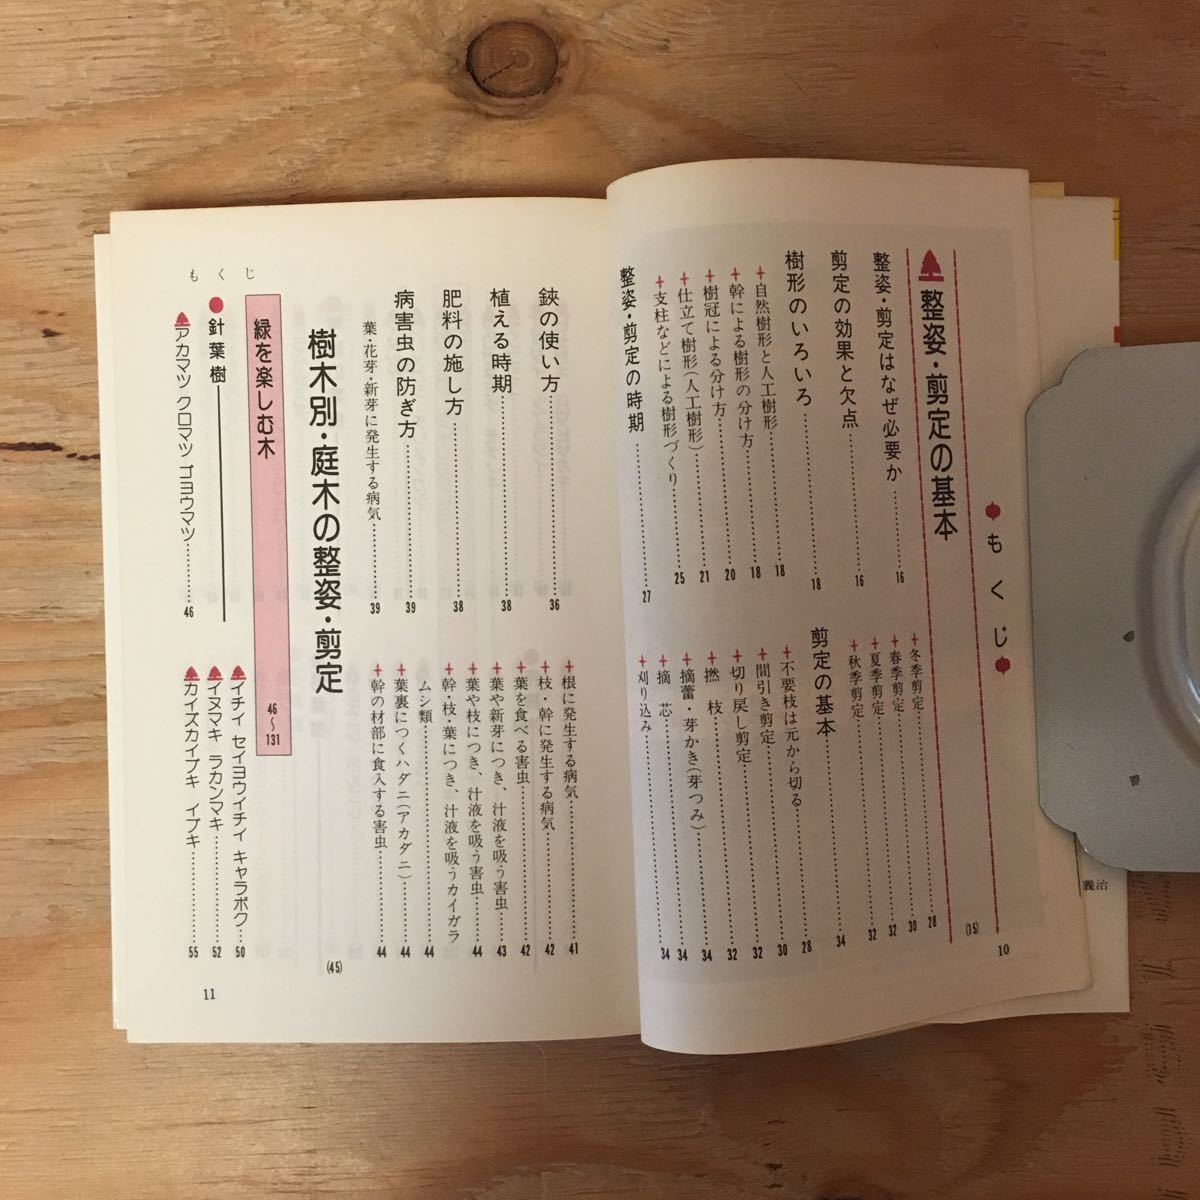 もくじ
整姿・剪定の基本 (15)
整姿・剪定はなぜ必要か 16
剪定の効果と欠点 16
樹形のいろいろ 18
自然樹形と人工樹形 18
幹による樹形の分け方 20
樹冠による分け方 21
仕立て樹形(人工樹形) 25
支柱などによる樹形づくり
整姿・剪定の時期 27
冬季剪定 28
春季剪定 30
夏季剪定 32
秋季剪定 32
剪定の基本 34
不要枝は元から切る
間引き剪定
切り戻し剪定 32
撚枝 34
摘蕾・芽かき(芽つみ) 34
摘芯 34
刈り込み
10
鋏の使い方 36
植える時期 38
肥料の施し方 38
病害虫の防ぎ方 39
葉・花芽・新芽に発生する病気 39
根に発生する病気 41
枝・幹に発生する病気 42
葉を食べる害虫 42
葉や新芽につき、汁液を吸う害虫 43
葉や枝につき、汁液を吸う害虫 44
幹・枝・葉につき、汁液を吸うカイガラ
ムシ類 44
葉裏につくハダニ(アカダニ) 44
幹の材部に食入する害虫 44
樹木別・庭木の整姿・剪定 (45)
緑を楽しむ木 46〜131
針葉樹
アカマツ クロマツ ゴヨウマツ 46
イチイ セイヨウイチイ キャラボク 50
イヌマキ ラカンマキ 52
カイズカイブキ イブキ 55
もくじ
11
義治